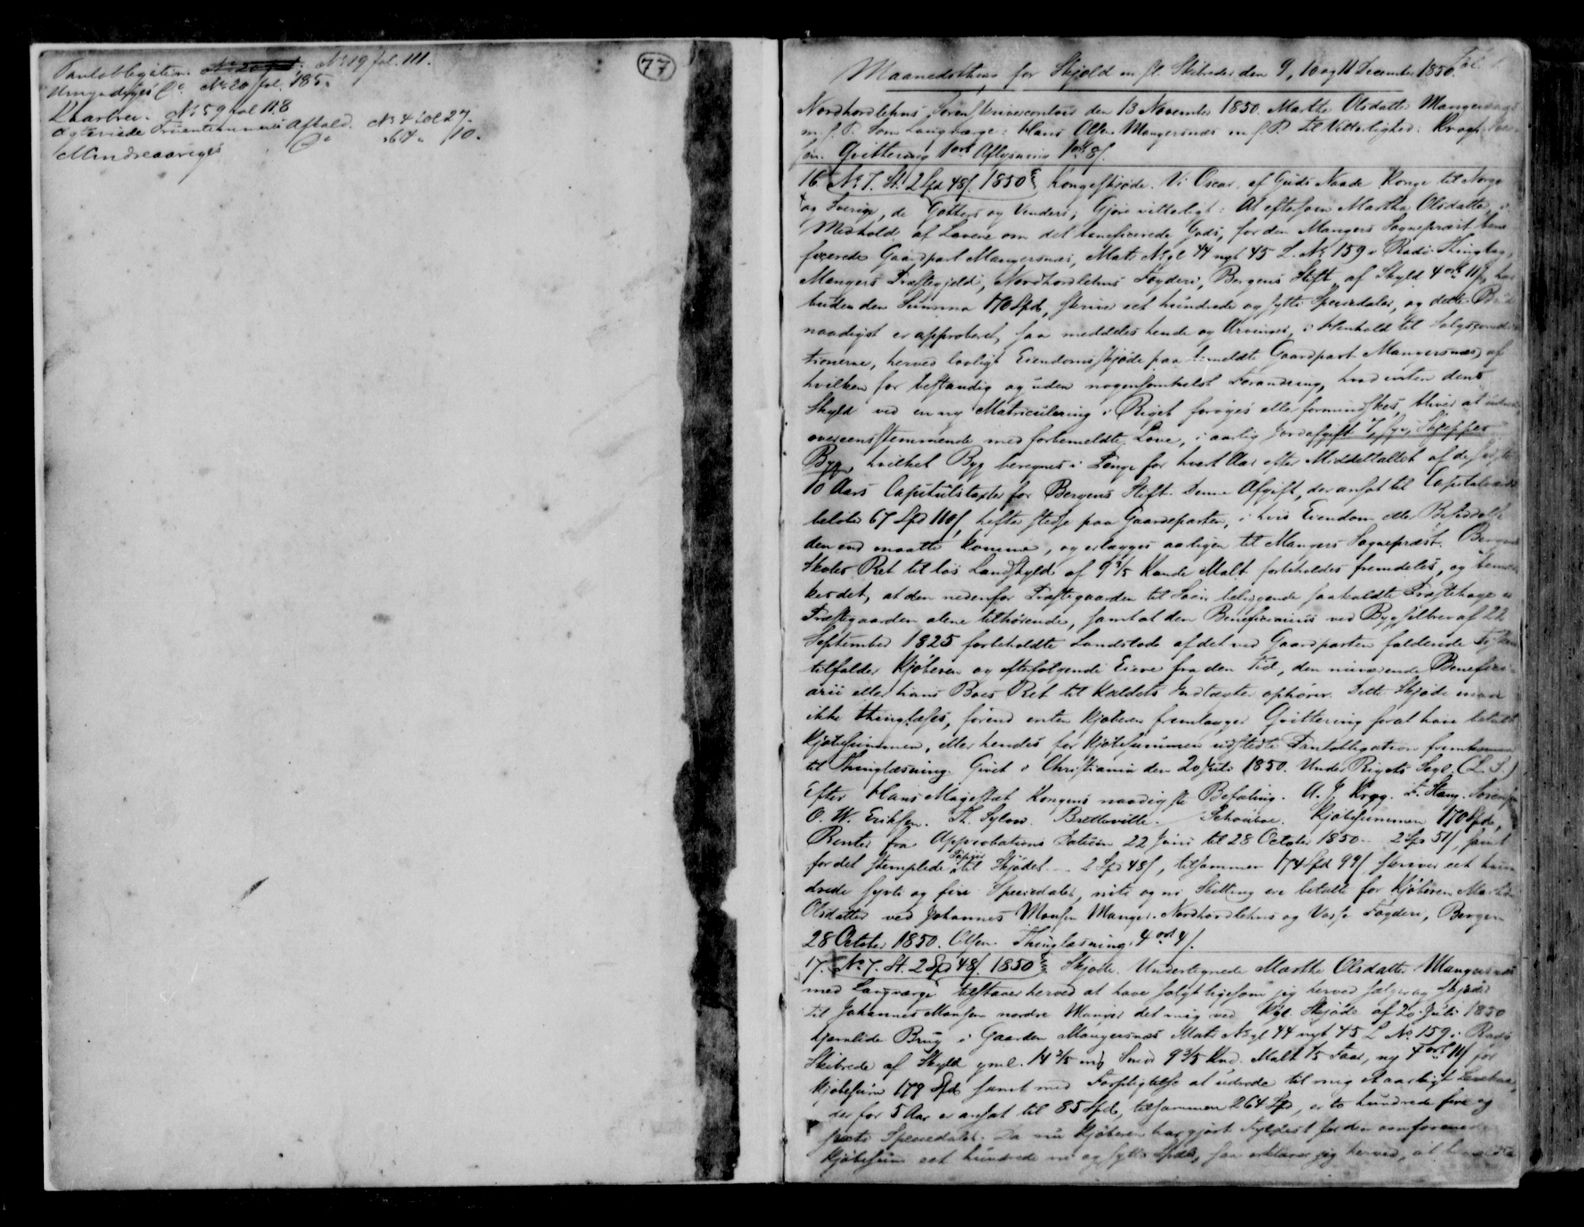 Pantobligation. No 19 fol. 111.
Umyndiges Do No 20 fol. 185.
Kaarbrev. No 59 fol. 118
Afkald. No 4 fol 27.
Mindreaariges Do " 67 " 10.
77
Maanedsthing for Skjold m. fl. Skibreder den 9, 10 og 11 December 1850.
Nordhordlehns Sorenskrivercontoir den 13 November 1850. Marthe Olsdatter Mangersnæs
m. f. P. Som Laugværge: Hans Olsen Mangersnæs m. f. P. Til Vitterlighed: Krogh.
Qvittering 1 ort Aflysning 1 ort 8 s.
16 No 7. St. 2 Spd 48 s. 1850 Kongeskjøde. Vi Oscar, af Guds Naade Konge til Norge
og Sverige, de Gothers og Venders, Gjøre vitterligt: At eftersom Marthe Olsdatter, i
Medhold af Lovene om det beneficerede Gods, for den Mangers Sognepræst bene
ficerede Gaardpart Mangersnæs, Matr No gl 44 nyt 45 L. No 159 i Radø Thinglag,
Mangers Præstegjeld, Nordhordlehns Fogderi, Bergens Stift, af Skyld 4 ort 11 s, har
buden den Summa 170 Spd, skriver eet hundrede og sytti Speciedaler, og dette Bud
naadigst er approberet, saa meddeles hende og Arvinger, i Henhold til Salgscondi
tionerne, herved lovligt Eiendomsskjøde paa bemeldte Gaardpart Mangersnæs, af
hvilken for bestandig og uden nogensomhelst Forandring, hvad enten dens
Skyld ved en ny Matriculering i Riget forøges eller formindskes, bliver at udrede
overeensstemmende med forbemeldte Love, i aarlig Jordafgift 7/8, syv Skjepper
Byg, hvilket Byg beregnes i Penge for hvert Aar efter Middeltallet af de sidste
10 Aars Capitelstaxter for Bergens Stift. Denne Afgift, der ansat til Capitalværdi
beløber 67 Spd 110 s, hefter stedse paa Gaardeparten, i hvis Eiendom eller Besiddelse
den end maatte komme, og erlægges aarligen til Mangers Sognepræst. Bergens
Skoles Ret til løs Landskyld af 9 3/5 Kande Malt forbeholdes fremdeles, og bemær
kes det, at den nedenfor Præstegaarden til Søen beliggende saakaldte Præstehage er
Præstegaarden alene tilhørende, samt at den Beneficiarius ved Bygselbrev af 22
September 1825 forbeholdte Landslod af det ved Gaardparten faldende
tilfalder Kjøberen og efterfølgende Eiere fra den Tid, den nuværende Benefici
arii eller hans Boes Ret til Kaldets Indtægter ophører. Dette Skjøde maa
ikke thinglæses, førend enten Kjøberen fremlægger Qvittering for at have betalt
Kjøbesummen, eller hendes, for Kjøbesummen udstedte Pantobligation fremkommer
til Thinglæsning. Givet i Christiania den 20 Juli 1850. Under Rigets Segl. (L. S.)
Efter Hans Majestæt Kongens naadigste Befaling. O. J. Krog. P.
O. W. Erichsen. Th. Sylow. Bretteville. Schouboe. Kjøbesummen 170 Spd,
Renter fra Approbations Datum 22 Juni til 28 October 1850 – 2 Spd 51 s samt
for det stemplede Papiir til Skjødet – 2 Spd 48 s, tilsammen 174 Spd 99 s skriver eet hun
drede sytti og fire Speciedaler, niti og ni Skilling ere betalte for Kjøberen Marthe
Olsdatter ved Johannes Monsen Manger. Nordhordlehns og Voss Fogderi, Bergen
28 October 1850. Olsen. Thinglæsning 4 ort 4 s.
17. No 7. St. 2 Spd 48 s. 1850 Skjøde. Undertegnede Marthe Olsdatter Mangersnæs
med Laugværge tilstaaer herved at have solgt ligesom jeg herved sælger og skjøder
til Johannes Monsen nordre Manger det mig ved Kgl. Skjøde af 20 Juli 1850
hjemlede Brug i Gaarden Mangersnæs Matr No gl 44 nyt 45 L No 159 i Radø
Skibrede af Skyld gml. 14 2/5 mrk Smør 9 3/5 Knd. Malt 1/5 Faar, ny 4 ort 11 s for
Kjøbesum 179 Spd samt med Forpligtelse at udrede til mig et aarligt
der for 5 Aar er ansat til 85 Spd, tilsammen 264 Spd, er to hundrede fire og
sexti Speciedaler. Da nu Kjøberen har gjort Fyldest for den omforenede
Kjøbesum eet hundrede ni og sytti Spd, saa erklærer jeg herved, at